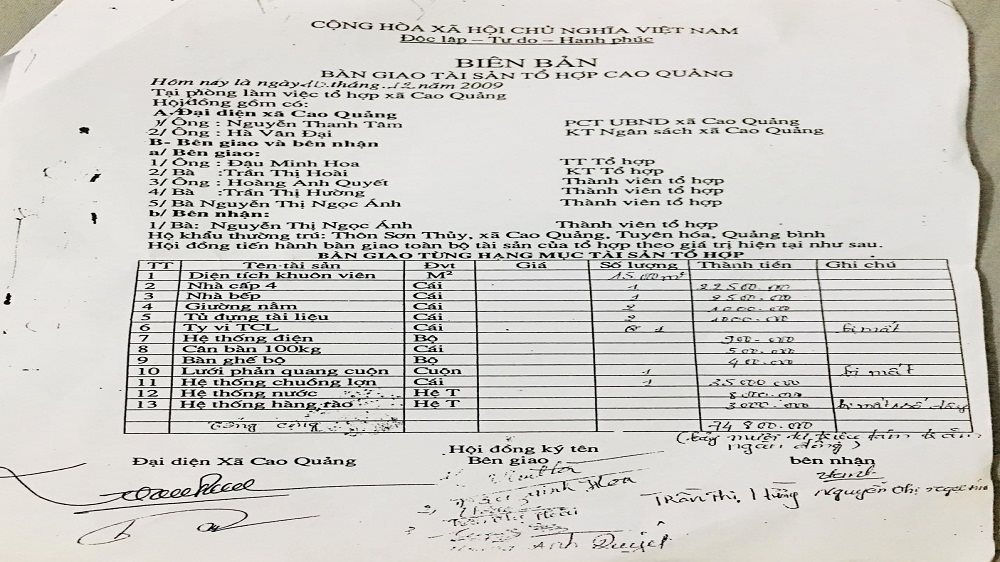 CỘNG HÒA XÃ HỘI CHỦ NGHĨA VIỆT NAM
Độc lập – Tự do – Hạnh phúc
BIÊN BẢN
BÀN GIAO TÀI SẢN TỔ HỢP CAO QUẢNG
Hôm nay là ngày 10 tháng 12 năm 2009
Tại phòng làm việc tổ hợp xã Cao Quảng
Hội đồng gồm có:
A. Đại diện xã Cao Quảng
1/ Ông : Nguyễn Thanh Tâm PCT UBND xã Cao Quảng
2/ Ông : Hà Văn Đại KT Ngân sách xã Cao Quảng
B- Bên giao và bên nhận
a/ Bên giao:
1/ Ông : Đậu Minh Hoa TT Tổ hợp
2/ Bà : Trần Thị Hoài KT Tổ hợp
3/ Ông : Hoàng Anh Quyết Thành viên tổ hợp
4/ Bà : Trần Thị Hường Thành viên tổ hợp
5/ Bà Nguyễn Thị Ngọc Ánh Thành viên tổ hợp
b/ Bên nhận:
1/ Bà: Nguyễn Thị Ngọc Ánh Thành viên tổ hợp
Hộ khẩu thường trú: Thôn Sơn Thủy, xã Cao Quảng, Tuyên hóa, Quảng bình
Hội đồng tiến hành bàn giao toàn bộ tài sản của tổ hợp theo giá trị hiện tại như sau.
BÀN GIAO TỪNG HẠNG MỤC TÀI SẢN TỔ HỢP
TT Tên tài sản Đvt Giá Số lượng Thành tiền Ghi chú
1 Diện tích khuôn viên M² 1500m²
2 Nhà cấp 4 Cái 1 22500.000
3 Nhà bếp Cái 1 2500.000
4 Giường nằm Cái 2 1000.000
5 Tủ đựng tài liệu Cái 2 1000.000
6 Ty vi TCL Cái 1 bị mất
7 Hệ thống điện Bộ 900.000
8 Cân bàn 100kg Cái 500.000
9 Bàn ghế bộ Bộ 400.000
10 Lưới phản quang cuộn Cuộn 1 bị mất
11 Hệ thống chuồng lợn Cái 1 35000.000
12 Hệ thống nước Hệ T 8000.000
13 Hệ thống hàng rào Hệ T 3000.000 bị mất số dây
Tổng cộng 74 800.000
(bảy mươi tư triệu tám trăm
ngàn đồng)
Hội đồng ký tên
Đại diện Xã Cao Quảng Bên giao bên nhận
Minh Hoa
Trần Thị Hoài
Anh Quyết
Trần Thị
Nguyễn Thị Ngọc